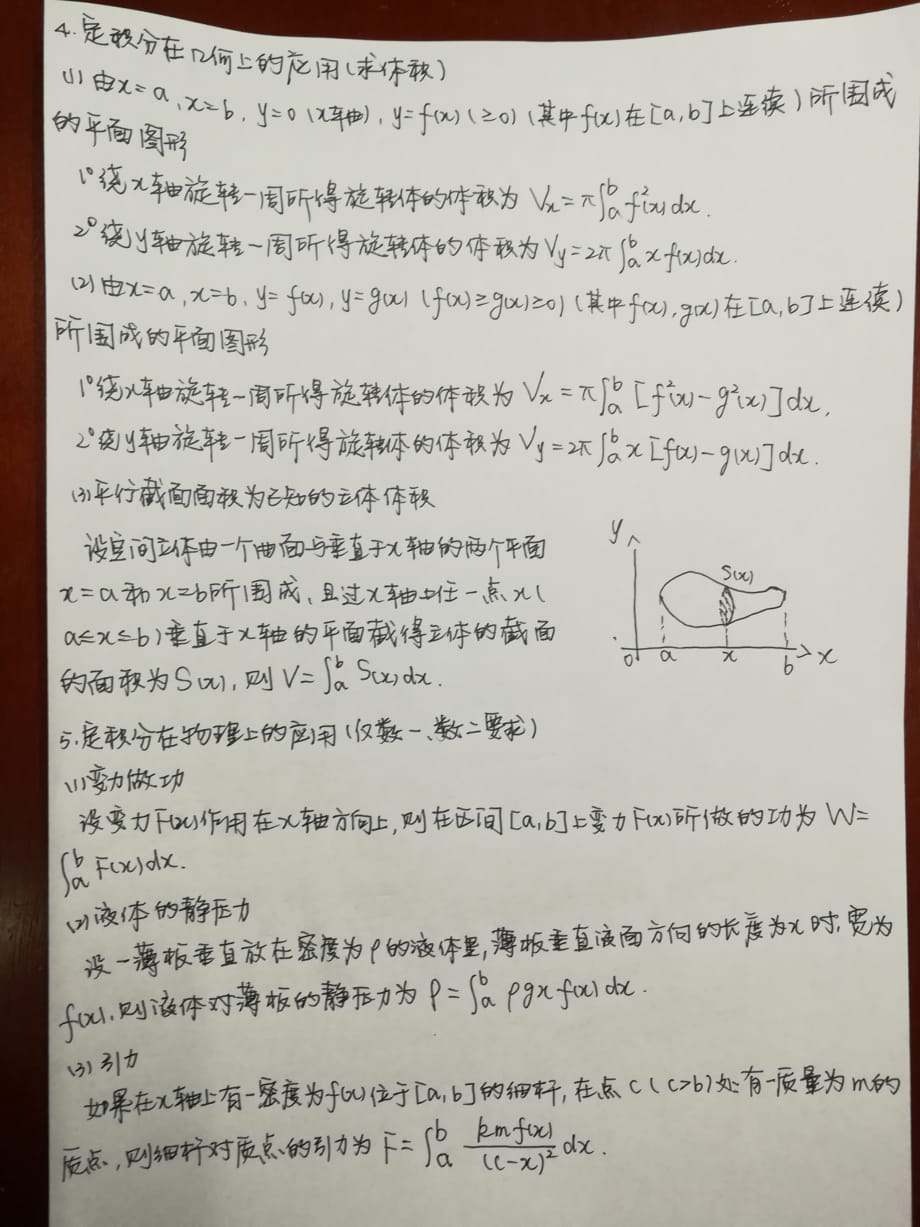 4.定积分在几何上的应用(求体积)
(1)由x=a,x=b,y=0(x轴),y=f(x)(≥0)(其中f(x)在[a,b]上连续)所围成
的平面图形
1°绕x轴旋转一周所得旋转体的体积为Vx=π∫ₐᵇf²(x)dx.
2°绕y轴旋转一周所得旋转体的体积为Vy=2π∫ₐᵇxf(x)dx.
(2)由x=a,x=b,y=f(x),y=g(x)(f(x)≥g(x)≥0)(其中f(x),g(x)在[a,b]上连续)
所围成的平面图形
1°绕x轴旋转一周所得旋转体的体积为Vx=π∫ₐᵇ[f²(x)-g²(x)]dx,
2°绕y轴旋转一周所得旋转体的体积为Vy=2π∫ₐᵇx[f(x)-g(x)]dx.
(3)平行截面面积为已知的立体体积
设空间立体由一个曲面与垂直于x轴的两个平面
x=a和x=b所围成,且过x轴上任一点x(
a≤x≤b)垂直于x轴的平面截得立体的截面
的面积为S(x),则V=∫ₐᵇS(x)dx.
y
S(x)
0 a x b x
5.定积分在物理上的应用(仅数一、数二要求)
(1)变力做功
设变力F(x)作用在x轴方向上,则在区间[a,b]上变力F(x)所做的功为W=
∫ₐᵇF(x)dx.
(2)液体的静压力
设一薄板垂直放在密度为ρ的液体里,薄板垂直液面方向的长度为x时,宽为
f(x),则液体对薄板的静压力为P=∫ₐᵇρgxf(x)dx.
(3)引力
如果在x轴上有一密度为f(x)位于[a,b]的细杆,在点c(c>b)处有一质量为m的
质点,则细杆对质点的引力为F=∫ₐᵇ kmf(x)/(c-x)² dx.